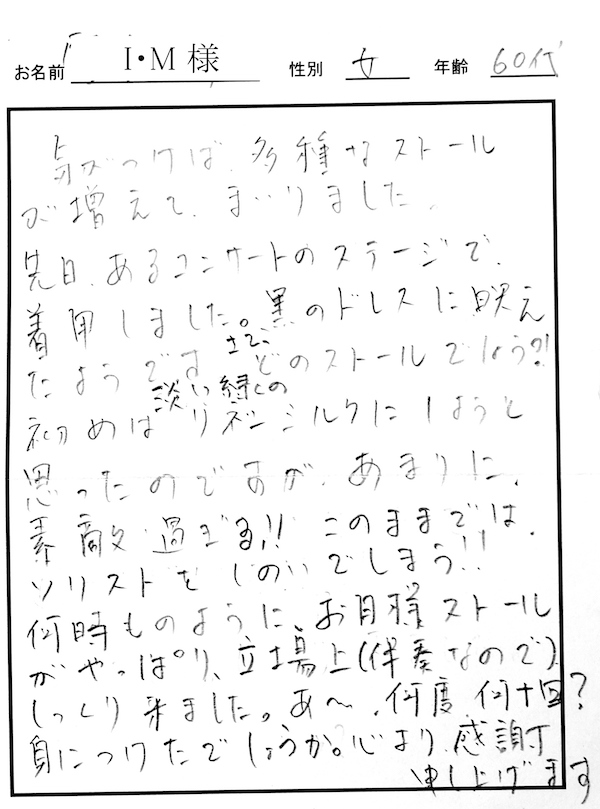 お名前 I・M 様 性別 女 年齢 60代
気がつけば、多種なストール
が増えて、まいりました。
先日、あるコンサートのステージで、
着用しました。黒のドレスに映え
たようです さて、どのストールでしょう?!
初めは 淡い緑の リボンシルクにしようと
思ったのですが、あまりに、
素敵過ぎる!! このままでは、
ソリストをしのいでしまう!!
何時ものように、お月様ストール
がやっぱり、立場上(伴奏なので)
しっくり来ました。あ〜、何度、何十回?
身につけたでしょうか。心より、感謝
申し上げます